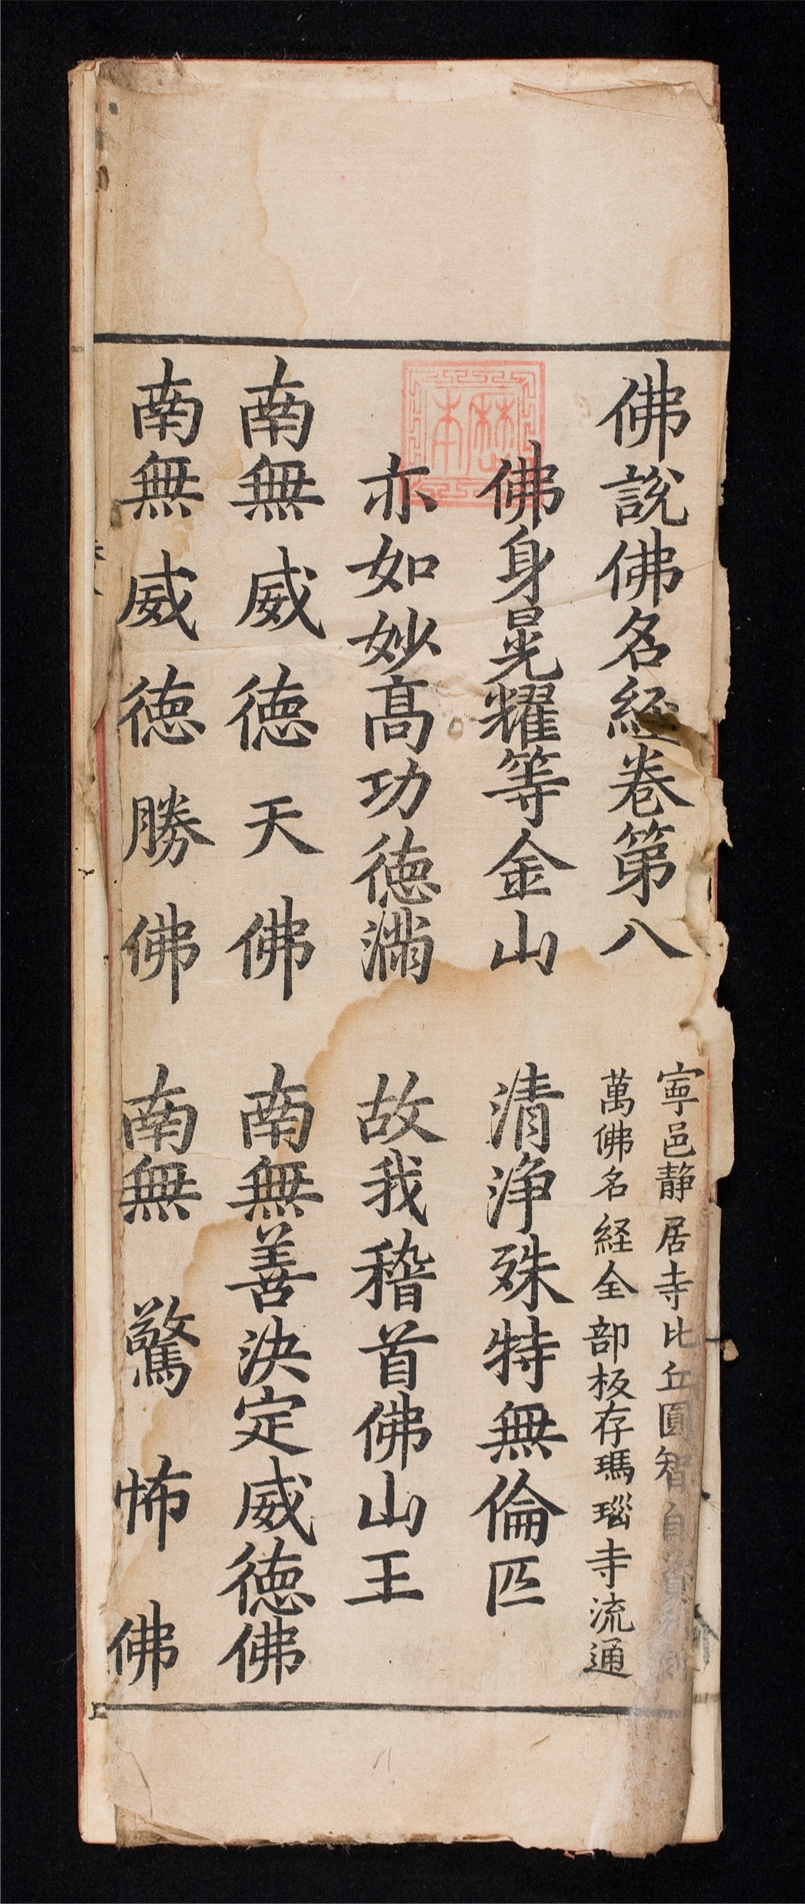 佛說佛名経卷第八
寕邑静居寺比丘圓智自
萬佛名経全部板存瑪瑙寺流通
佛身晃耀等金山　清浄殊特無倫匹
亦如妙髙功徳滿　故我稽首佛山王
南無威徳天佛　南無善決定威徳佛
南無威徳勝佛　南無驚怖佛